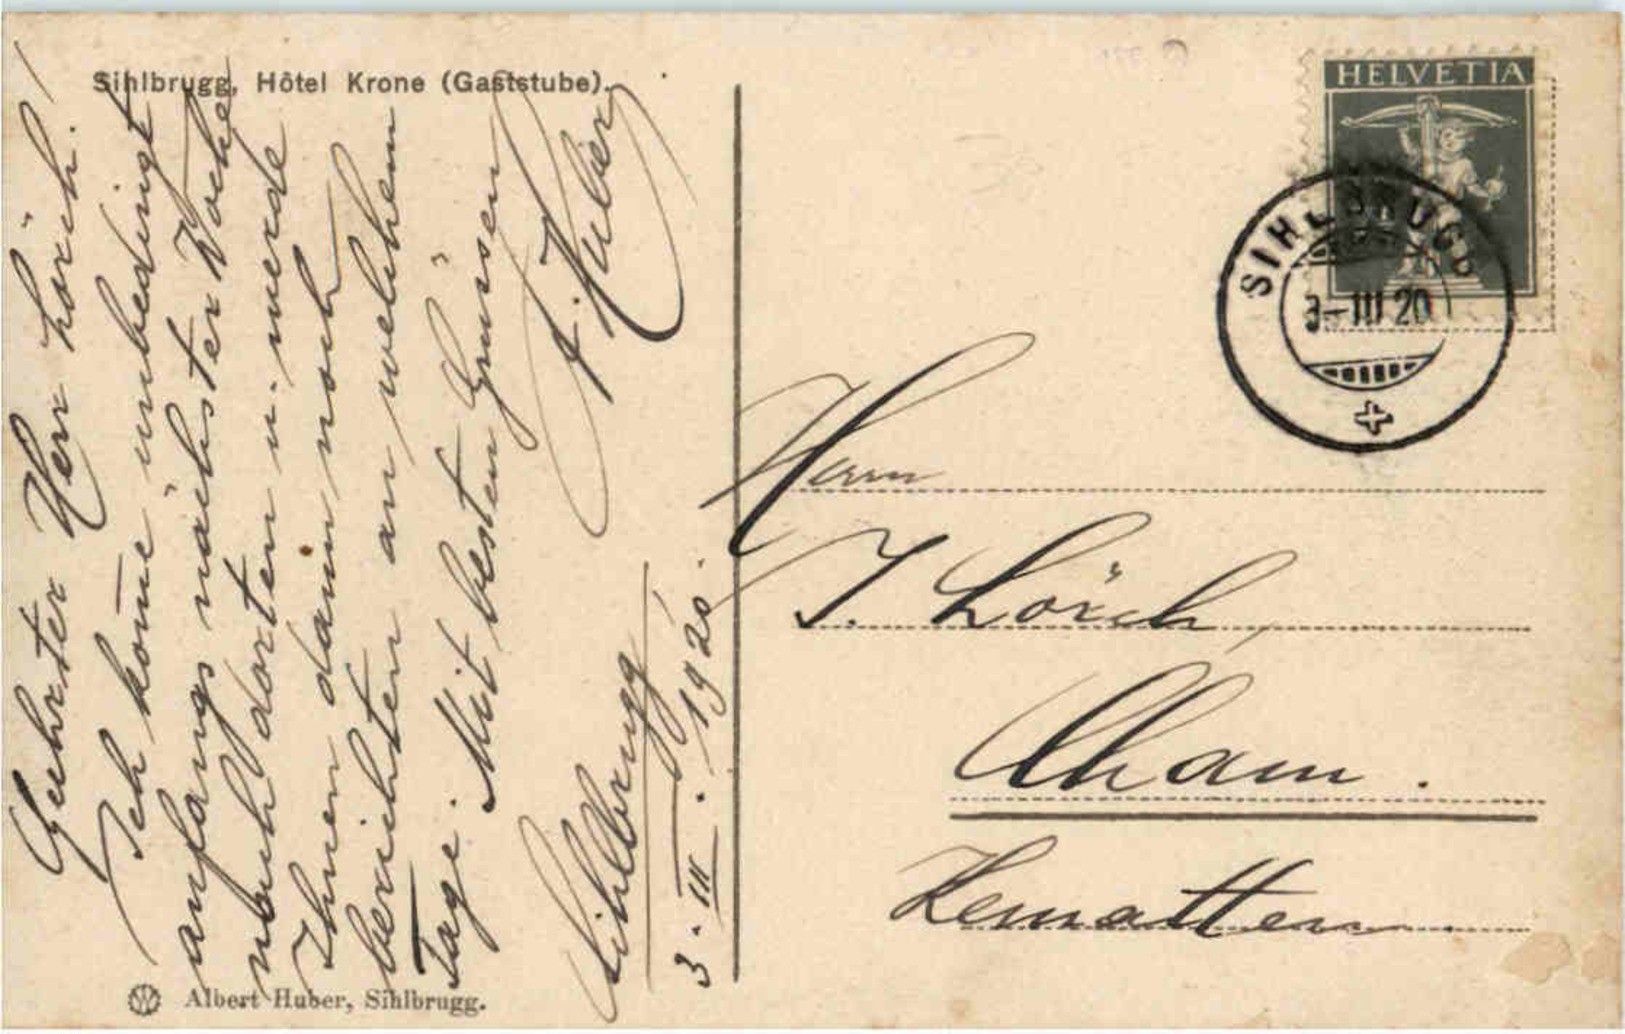 Sihlbrugg, Hôtel Krone (Gaststube).
Geehrter Herr Lörch!
Ich kom̅e unbedingt
anfangs nächster Woche
nach dorten u. werde
Ihnen dann noch
berichten an welchem
Tage. Mit besten Grüssen
A. Huber
Sihlbrugg
3. III. 1920.
Albert Huber, Sihlbrugg.
HELVETIA
SIHLBRUGG
3-III 20
Herrn
J. Lörch,
Cham.
Hematten